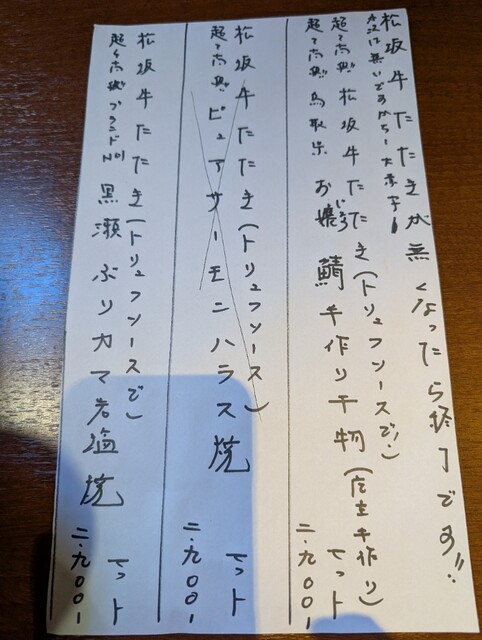 松坂牛たたきが無くなったら終了です!!
次は無いですから!大赤字!
超で高脂松坂牛たたき(トリュフソースで!)
超で高脂鳥取県お嬢じょう鯖手作り干物(店主手作り)
セット
二.九〇〇!
松坂牛たたき(トリュフソース)
超で高脂ピュアサーモンハラス焼
セット
二.九〇〇!
松坂牛たたき(トリュフソースで)
超で高脂ブランドNo1黒瀬ぶりカマ岩塩焼
セット
二.九〇〇!